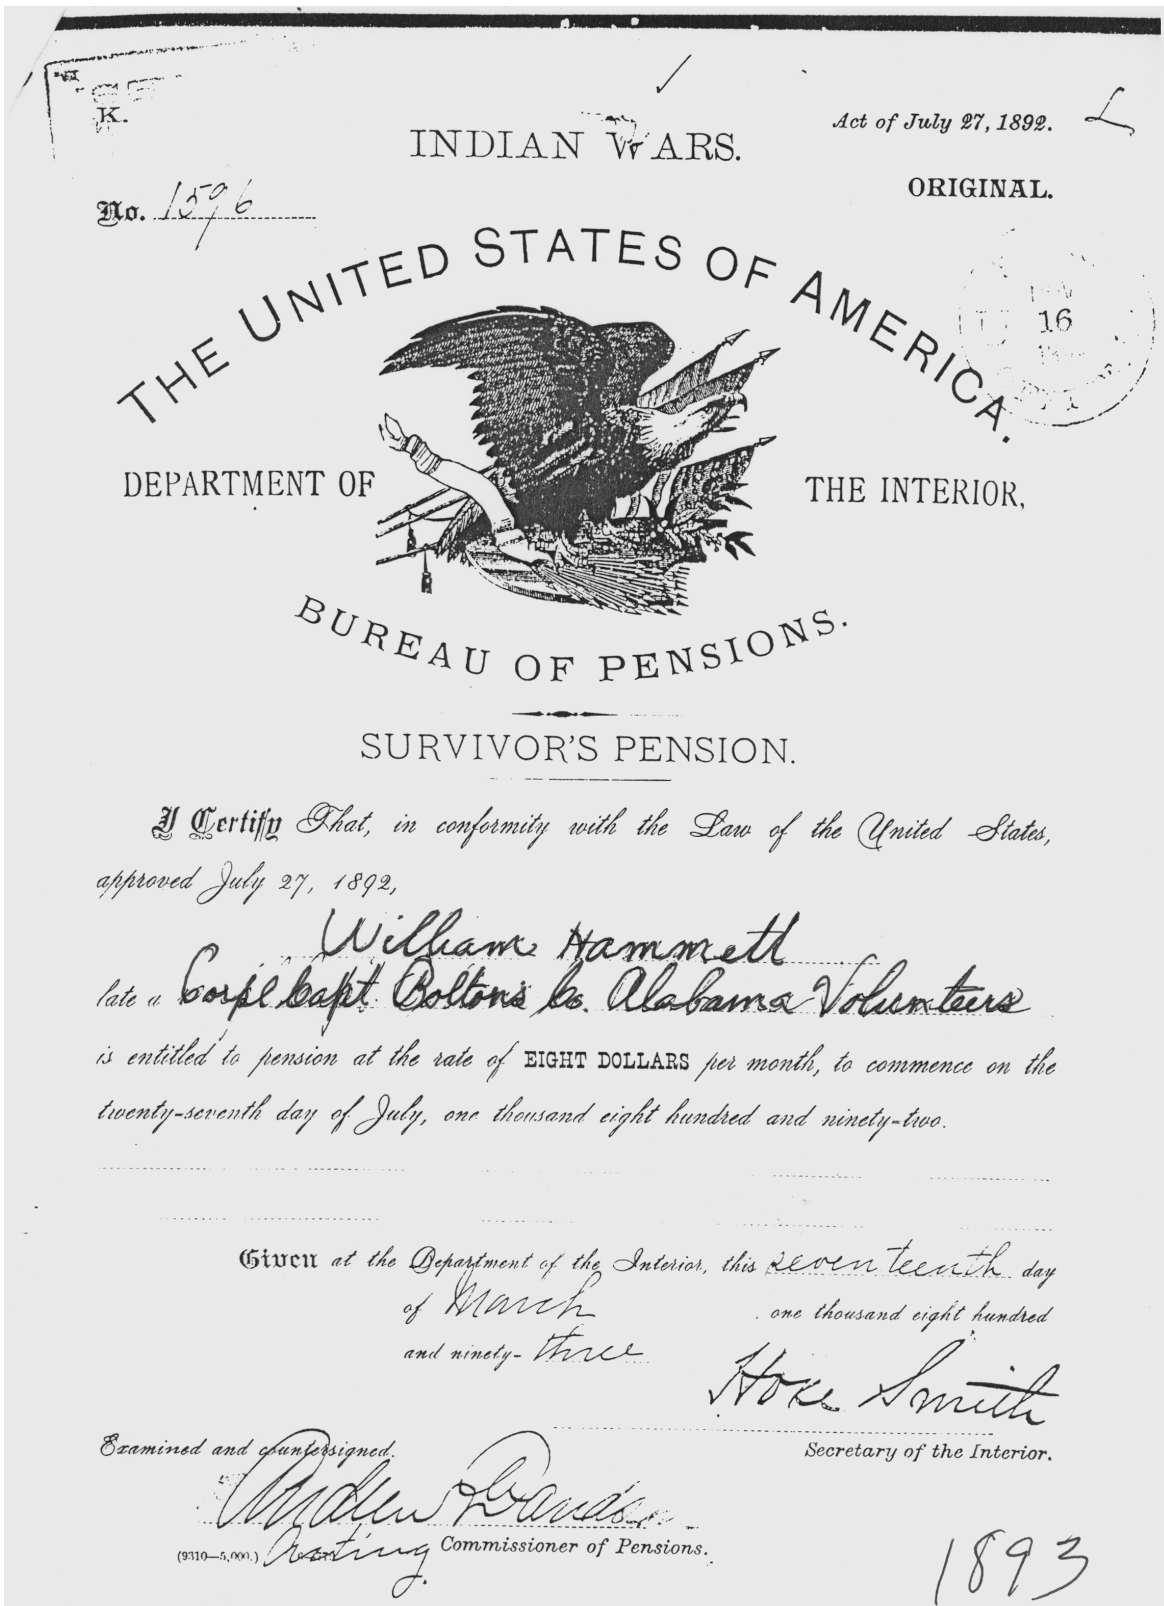 K.
Act of July 27, 1892.
L
INDIAN WARS.
ORIGINAL.
No. 1596
THE UNITED STATES OF AMERICA.
16
DEPARTMENT OF THE INTERIOR,
BUREAU OF PENSIONS.
SURVIVOR'S PENSION.
I Certify That, in conformity with the Law of the United States,
approved July 27, 1892,
William Hammett
late a Corpl Capt Boltons Co. Alabama Volunteers
is entitled to pension at the rate of EIGHT DOLLARS per month, to commence on the
twenty-seventh day of July, one thousand eight hundred and ninety-two.
Given at the Department of the Interior, this seventeenth day
of March one thousand eight hundred
and ninety-three
Hoke Smith
Secretary of the Interior.
Examined and countersigned.
Andrew Davidson
Acting Commissioner of Pensions.
(9310—5,000.)
1893